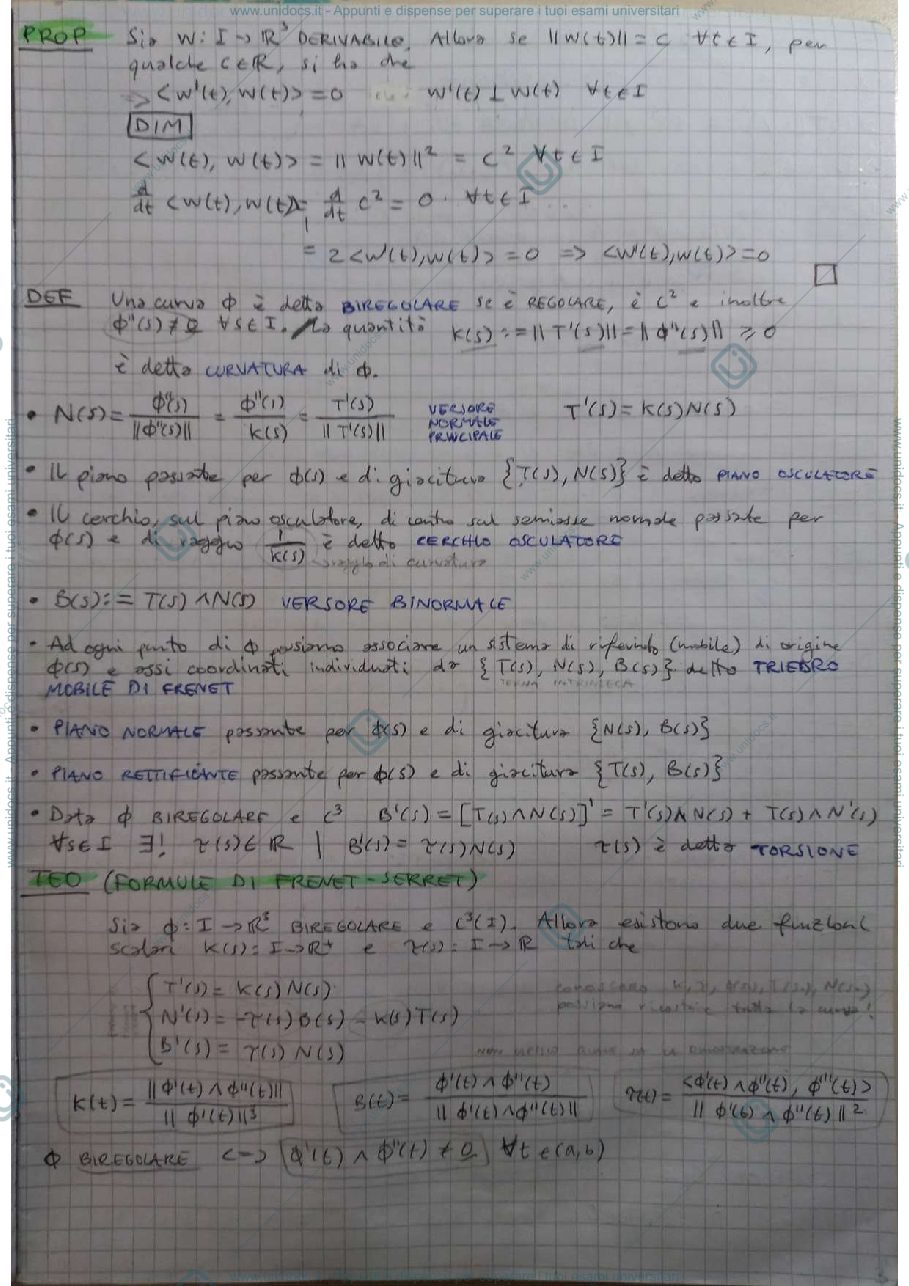 www.unidocs.it - Appunti e dispense per superare i tuoi esami universitari
PROP Sia W: I → R³ DERIVABILE. Allora se ||W(t)|| = c ∀t∈I, per
qualche c∈R, si ha che
=> <W'(t), W(t)> = 0 W'(t) ⊥ W(t) ∀t∈I
DIM
<W(t), W(t)> = ||W(t)||² = c² ∀t∈I
d/dt <W(t), W(t)> = d/dt c² = 0 ∀t∈I
= 2<W'(t), W(t)> = 0 => <W'(t), W(t)> = 0 □
DEF Una curva ϕ è detta BIREGOLARE se è REGOLARE, è C² e inoltre
ϕ''(s) ≠ 0 ∀s∈I. La quantità K(s) := ||T'(s)|| = ||ϕ''(s)|| ≥ 0
è detta CURVATURA di ϕ.
• N(s) = ϕ''(s)/||ϕ''(s)|| = ϕ''(s)/K(s) = T'(s)/||T'(s)|| VERSORE NORMALE PRINCIPALE T'(s) = K(s)N(s)
• Il piano passante per ϕ(s) e di giacitura {T(s), N(s)} è detto PIANO OSCULATORE
• Il cerchio, sul piano osculatore, di centro sul semiasse normale passante per
ϕ(s) e di raggio 1/K(s) è detto CERCHIO OSCULATORE
raggio di curvatura
• B(s) := T(s) ∧ N(s) VERSORE BINORMALE
• Ad ogni punto di ϕ possiamo associare un sistema di riferimento (mobile) di origine
ϕ(s) e assi coordinati individuati da {T(s), N(s), B(s)} detto TRIEDRO
TERNA INTRINSECA
MOBILE DI FRENET
• PIANO NORMALE passante per ϕ(s) e di giacitura {N(s), B(s)}
• PIANO RETTIFICANTE passante per ϕ(s) e di giacitura {T(s), B(s)}
• Data ϕ BIREGOLARE e C³ B'(s) = [T(s) ∧ N(s)]' = T'(s) ∧ N(s) + T(s) ∧ N'(s)
∀s∈I ∃! τ(s)∈R | B'(s) = τ(s)N(s) τ(s) è detta TORSIONE
TEO (FORMULE DI FRENET-SERRET)
Sia ϕ: I → R³ BIREGOLARE e C³(I). Allora esistono due funzioni
scalari K(s): I → R⁺ e τ(s): I → R tali che
T'(s) = K(s)N(s)
N'(s) = -τ(s)B(s) - K(s)T(s)
B'(s) = τ(s)N(s)
K(t) = ||ϕ'(t) ∧ ϕ''(t)||/||ϕ'(t)||³ B(t) = ϕ'(t) ∧ ϕ''(t)/||ϕ'(t) ∧ ϕ''(t)|| τ(t) = <ϕ'(t) ∧ ϕ''(t), ϕ'''(t)>/||ϕ'(t) ∧ ϕ''(t)||²
ϕ BIREGOLARE <-> ϕ'(t) ∧ ϕ''(t) ≠ 0 ∀t∈(a,b)